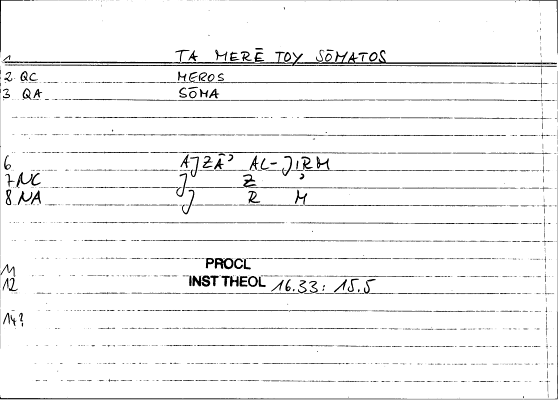 1 TA MERĒ TOY SŌMATOS
2 QC MEROS
3 QA SŌMA
6 AJZĀ' AL-JIRM
7 NC J Z '
8 NA J R M
11 PROCL
12 INST THEOL 16.33: 15.5
14?